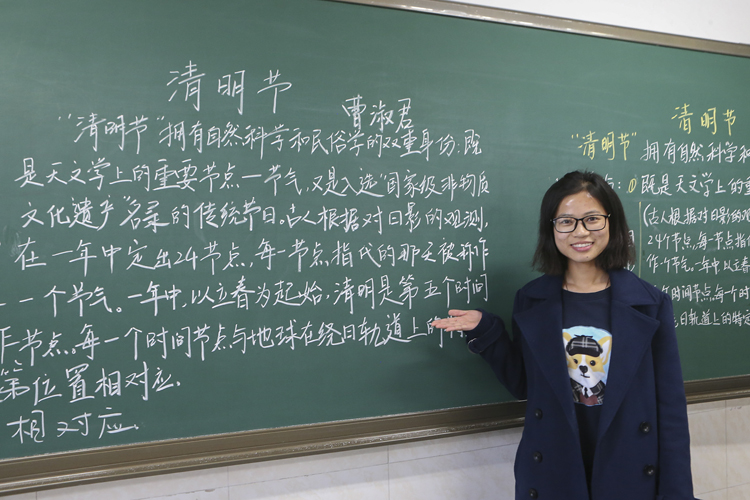 清明节
曹淑君
"清明节"拥有自然科学和民俗学的双重身份:既
是天文学上的重要节点一节气,又是入选"国家级非物质
文化遗产"名录的传统节日。古人根据对日影的观测,
在一年中定出24节点,每一节点,指代的那天被称作
一个节气。一年中,以立春为起始,清明是第五个时间
节点。每一个时间节点与地球在绕日轨道上的
第位置相对应.
相对应.
清明节
"清明节" 拥有自然科学和
既是天文学上的
(古人根据对日影的
24个节点,每一节点指
作一个节气。一年中以立春
时间节点,每一个时
日轨道上的特定